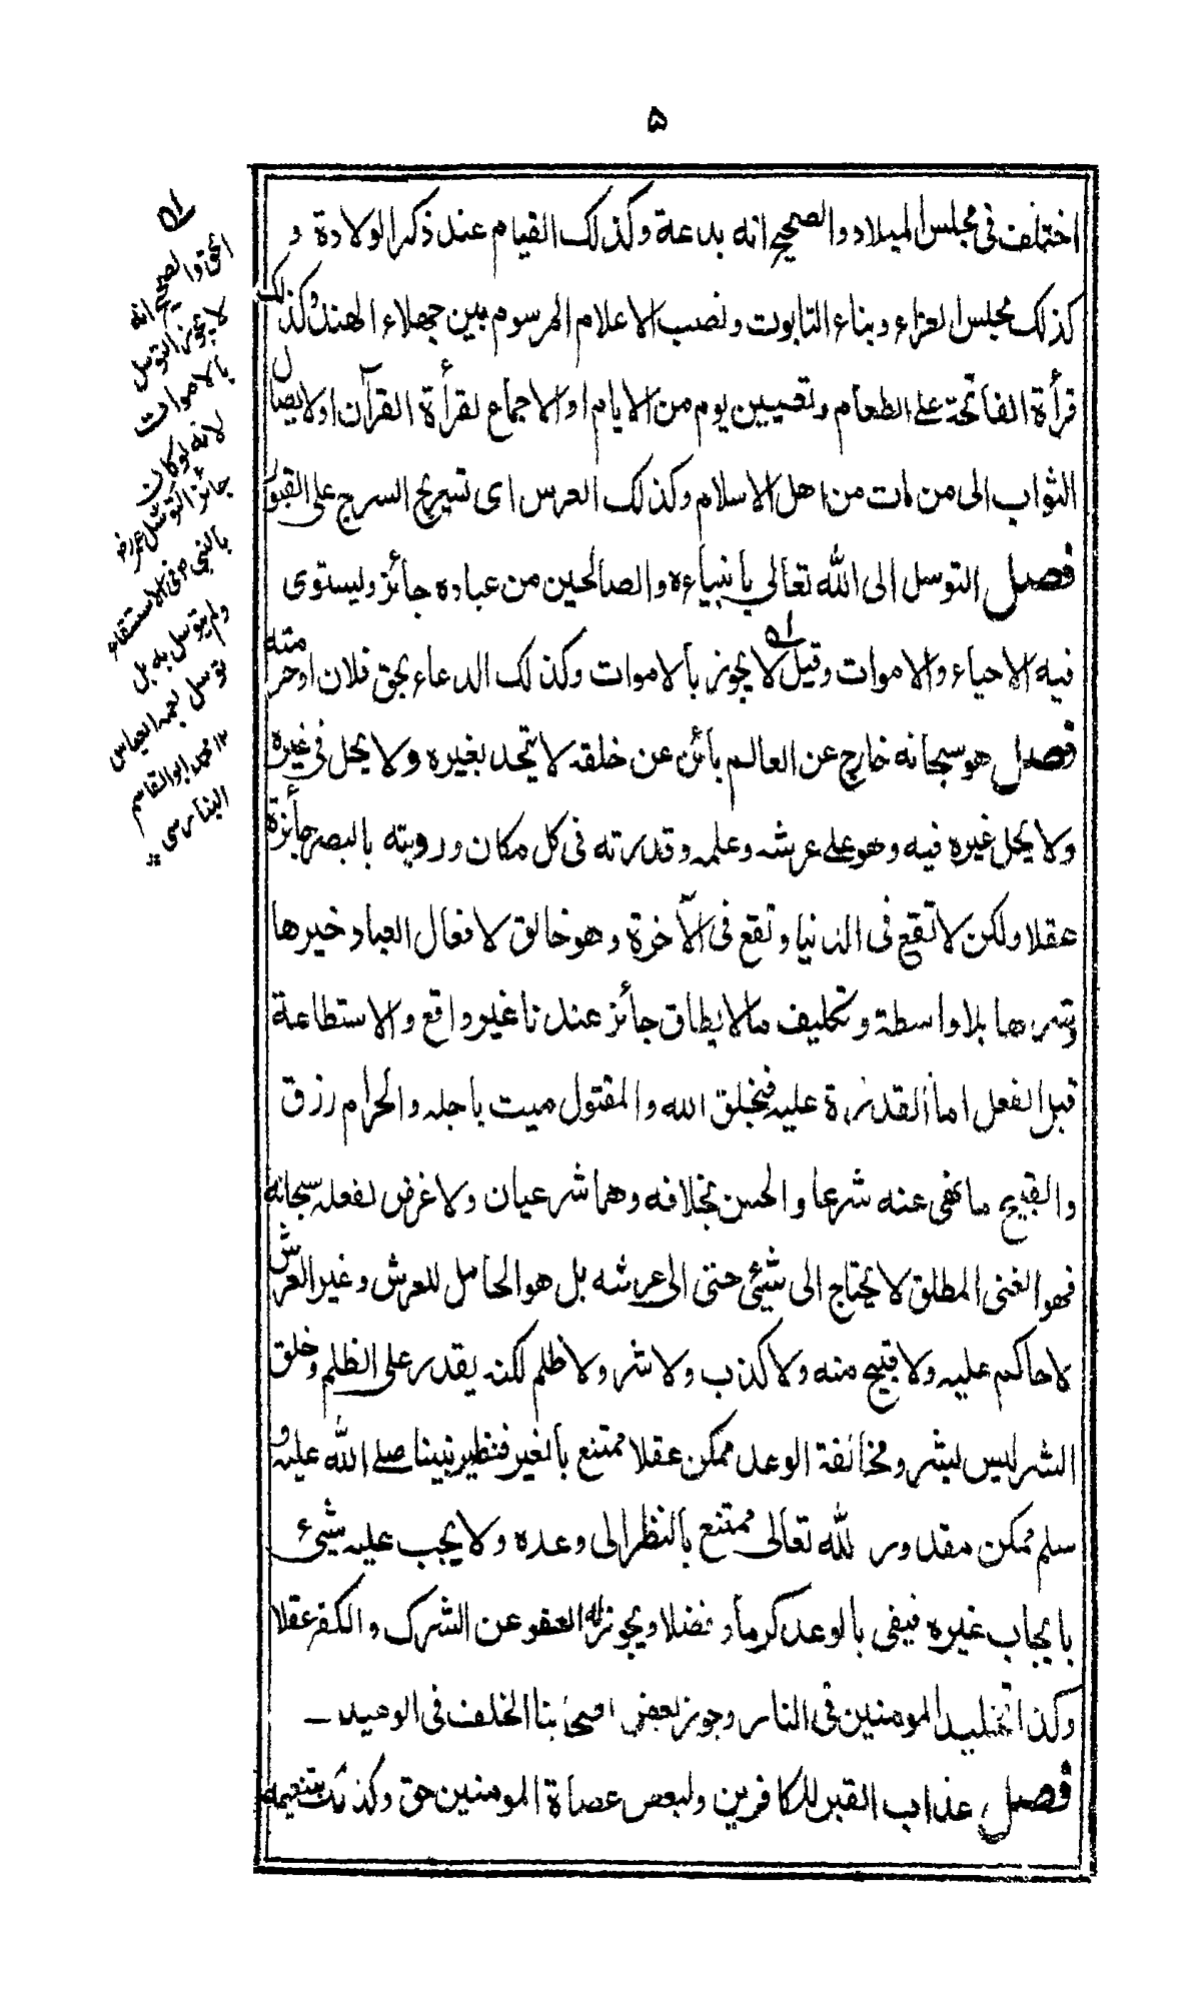 ۵
اختلف فی مجلس المیلاد والصحیح انه بدعة وکذلک القیام عند ذکر الولادة و
کذلک مجلس العزاء وبناء التابوت ونصب الاعلام المرسوم بین جهلاء الهند وکذلک
قرأة الفاتحة علی الطعام وتعیین یوم من الایام او الاجماع لقرأة القرآن او لایصال
الثواب الی من مات من اهل الاسلام وکذلک العرس ای تسریج السرج علی القبور
فصل التوسل الی الله تعالی بانبیاءه والصالحین من عباده جائز ویستوی
فیه الاحیاء والاموات وقیل لا یجوز بالاموات وکذلک الدعاء بحق فلان او حرمته
فصل هو سبحانه خارج عن العالم بائن عن خلقه لا یتحد بغیره ولا یحل فی غیره
ولا یحل غیره فیه وهو علی عرشه وعلمه وقدرته فی کل مکان ورویته بالبصر جائزة
عقلا ولکن لا تقع فی الدنیا وتقع فی الآخرة وهو خالق لافعال العباد خیرها
وشرها بلا واسطة وتکلیف مالا یطاق جائز عندنا غیر واقع والاستطاعة
قبل الفعل اما القدرة علیه فبخلق الله والمقتول میت باجله والحرام رزق
والقبیح ما نهی عنه شرعا والحسن بخلافه وهما شرعیان ولا غرض لفعله سبحانه
فهو الغنی المطلق لا یحتاج الی شیئ حتی الی عرشه بل هو الحامل للعرش وغیر العرش
لا حاکم علیه ولا قبیح منه ولا کذب ولا شر ولا ظلم لکنه یقدر علی الظلم وخلق
الشر لیس بشر ومخالفة الوعد ممکن عقلا ممتنع بالغیر فنظیر نبینا صلی الله علیه و
سلم ممکن مقدور لله تعالی ممتنع بالنظر الی وعده ولا یجب علیه شیئ
بایجاب غیره فیفی بالوعد کرما وفضلا ویجوز له العفو عن الشرک والکفر عقلا
وکذا تخلید المومنین فی النار وجوز بعض اصحابنا الخلف فی الوعید ـ
فصل عذاب القبر للکافرین ولبعض عصاة المومنین حق وکذلک تنعیمه
الحق والصحیح انه
لا یجوز التوسل
بالاموات
لانه لو کان
جائزا لتوسل عمر رض
بالنبی ص فی الاستسقاء
ولم یتوسل به بل
توسل بعمه العباس
۱۲ محمد ابو القاسم
البنارسی